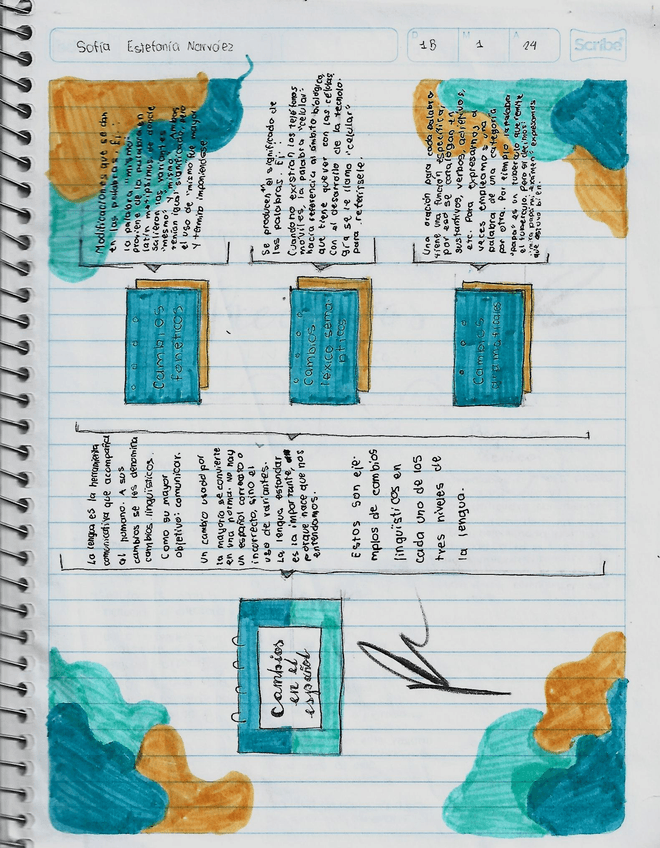 Sofía Estefanía Narvaez
D
1B
M
1
A
24
Scribe
Cambios
en el
español
La lengua es la herramienta
comunicativa que acompaña
al humano. A sus
cambios se les denomina
cambios lingüísticos.
Como su mayor
objetivo: comunicar.
Un cambio usado por
la mayoría se convierte
en una norma. no hay
un español correcto o
incorrecto, sino el
uso de variantes.
La lengua estandar
es la importante,
porque hace que nos
entendamos.
Estos son eje-
mplos de cambios
lingüísticos en
cada uno de los
tres niveles de
la lengua.
Cambios
fonéticos
Modificaciones que se dan
en las palabras, Ej:
la palabra "mismo":
proviene de la palabra en
latín metipsimus de donde
salieron las variantes
"mesmo" y "mismo", ambas
tenían igual significado, pero
el uso de "mismo" fue mayor
y término imponiendose.
Cambios
léxico semá-
nticos
Se producen en el significado de
las palabras. Ej:
Cuando no existían los teléfonos
móviles, la palabra "celular"
hacía referencia al ámbito biológico,
que tiene que ver con las células
con el desarrollo de la tecnolo-
gía se le llamo "celular"
para referirsele.
Cambios
gramaticales
Una oración para cada palabra
tiene una función específica,
por eso se catalogan en
sustantivos, verbos, adjetivos,
etc. Para expresarnos, a
veces empleamos una
palabra de una categoría
por otra. Por ejemplo la palabra
"papa" es un tubérculo que
el tubérculo. Pero si decimos:
expresamos
que estuvo bien.